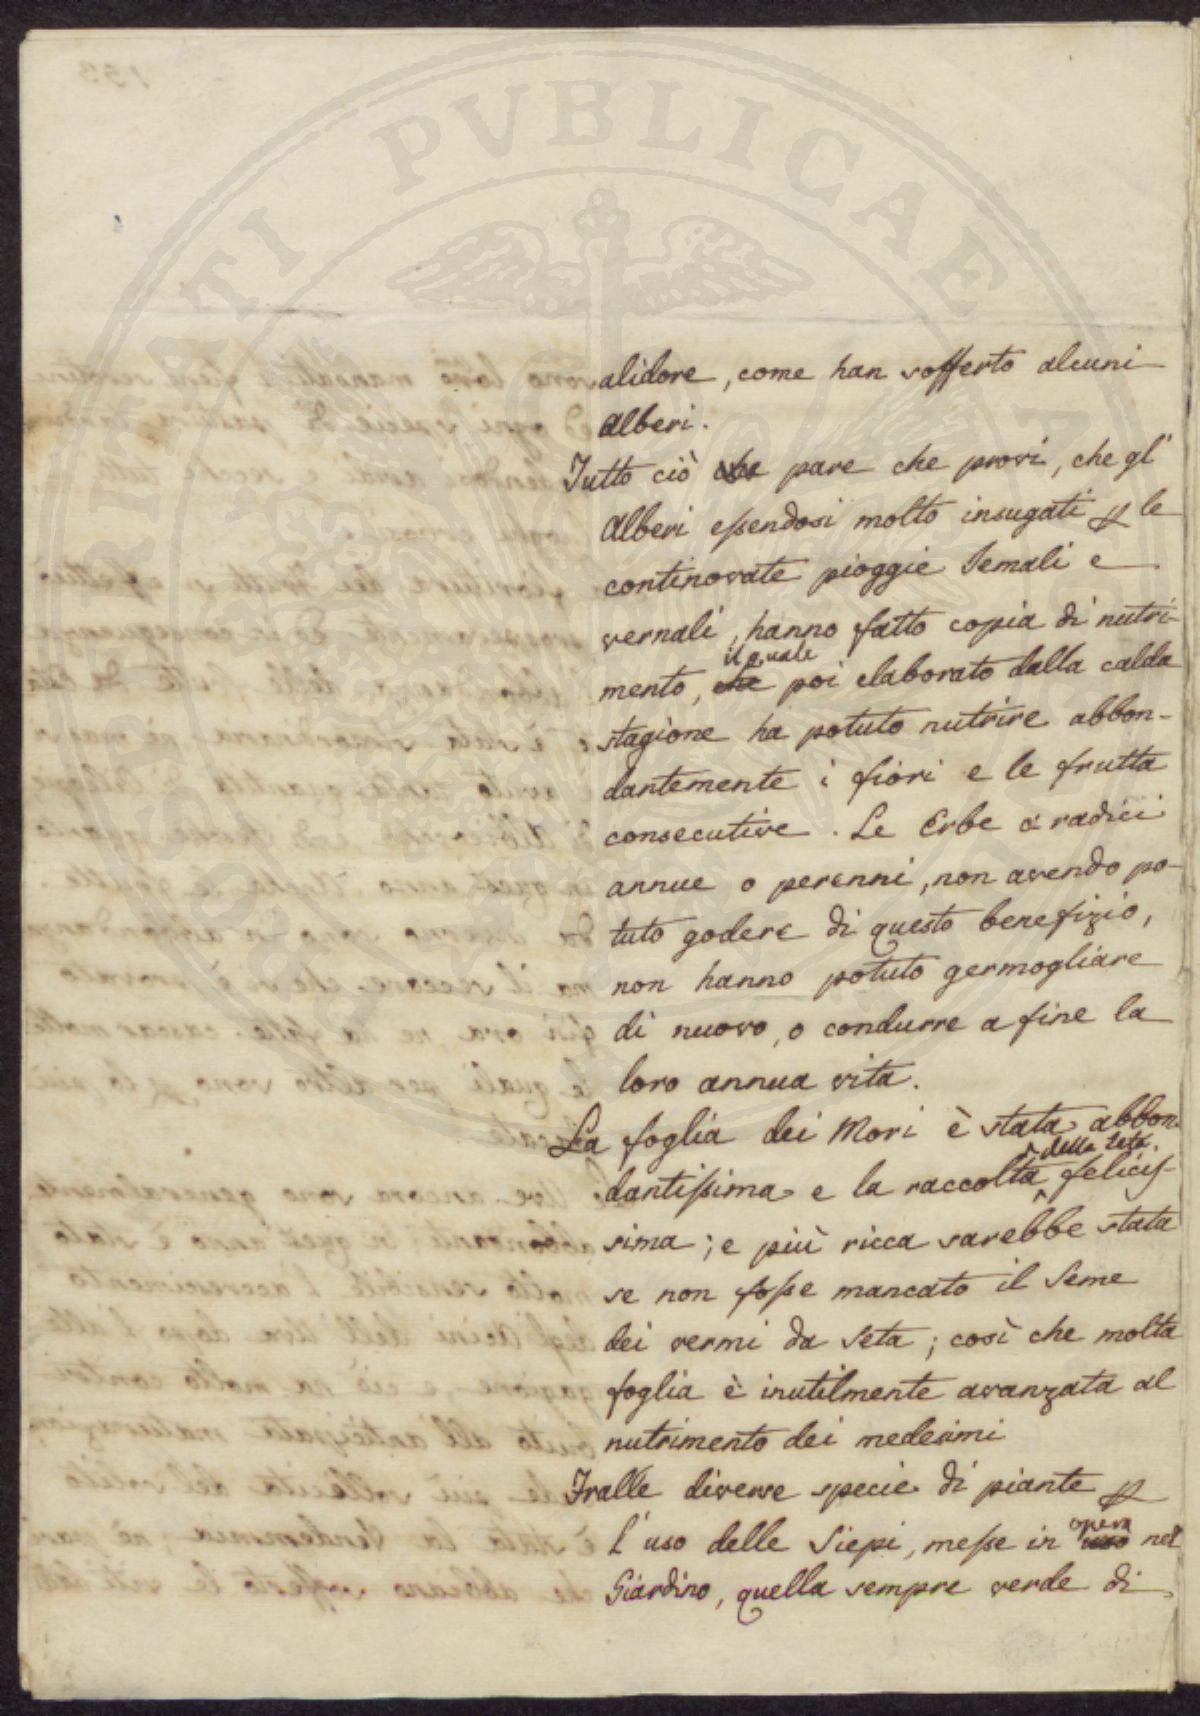 alidore, come han sofferto alcuni
Alberi.
Tutto ciò che pare che provi, che gl'
Alberi essendosi molto insugati p le
continovate pioggie Iemali e
vernali, hanno fatto copia di nutri-
il quale
mento, che poi elaborato dalla calda
stagione ha potuto nutrire abbon-
dantemente i fiori e le frutta
consecutive. Le Erbe a radici
annue o perenni, non avendo po-
tuto godere di questo benefizio,
non hanno potuto germogliare
di nuovo, o condurre a fine la
loro annua vita.
La foglia dei Mori è stata abbon-
della Seta
dantissima e la raccolta felicis-
sima; e più ricca sarebbe stata
se non fosse mancato il Seme
dei vermi da Seta; così che molta
foglia è inutilmente avanzata al
nutrimento dei medesimi
Fralle diverse specie di piante p
opera
l'uso delle Siepi, messe in uso nel
Giardino, quella sempre verde di